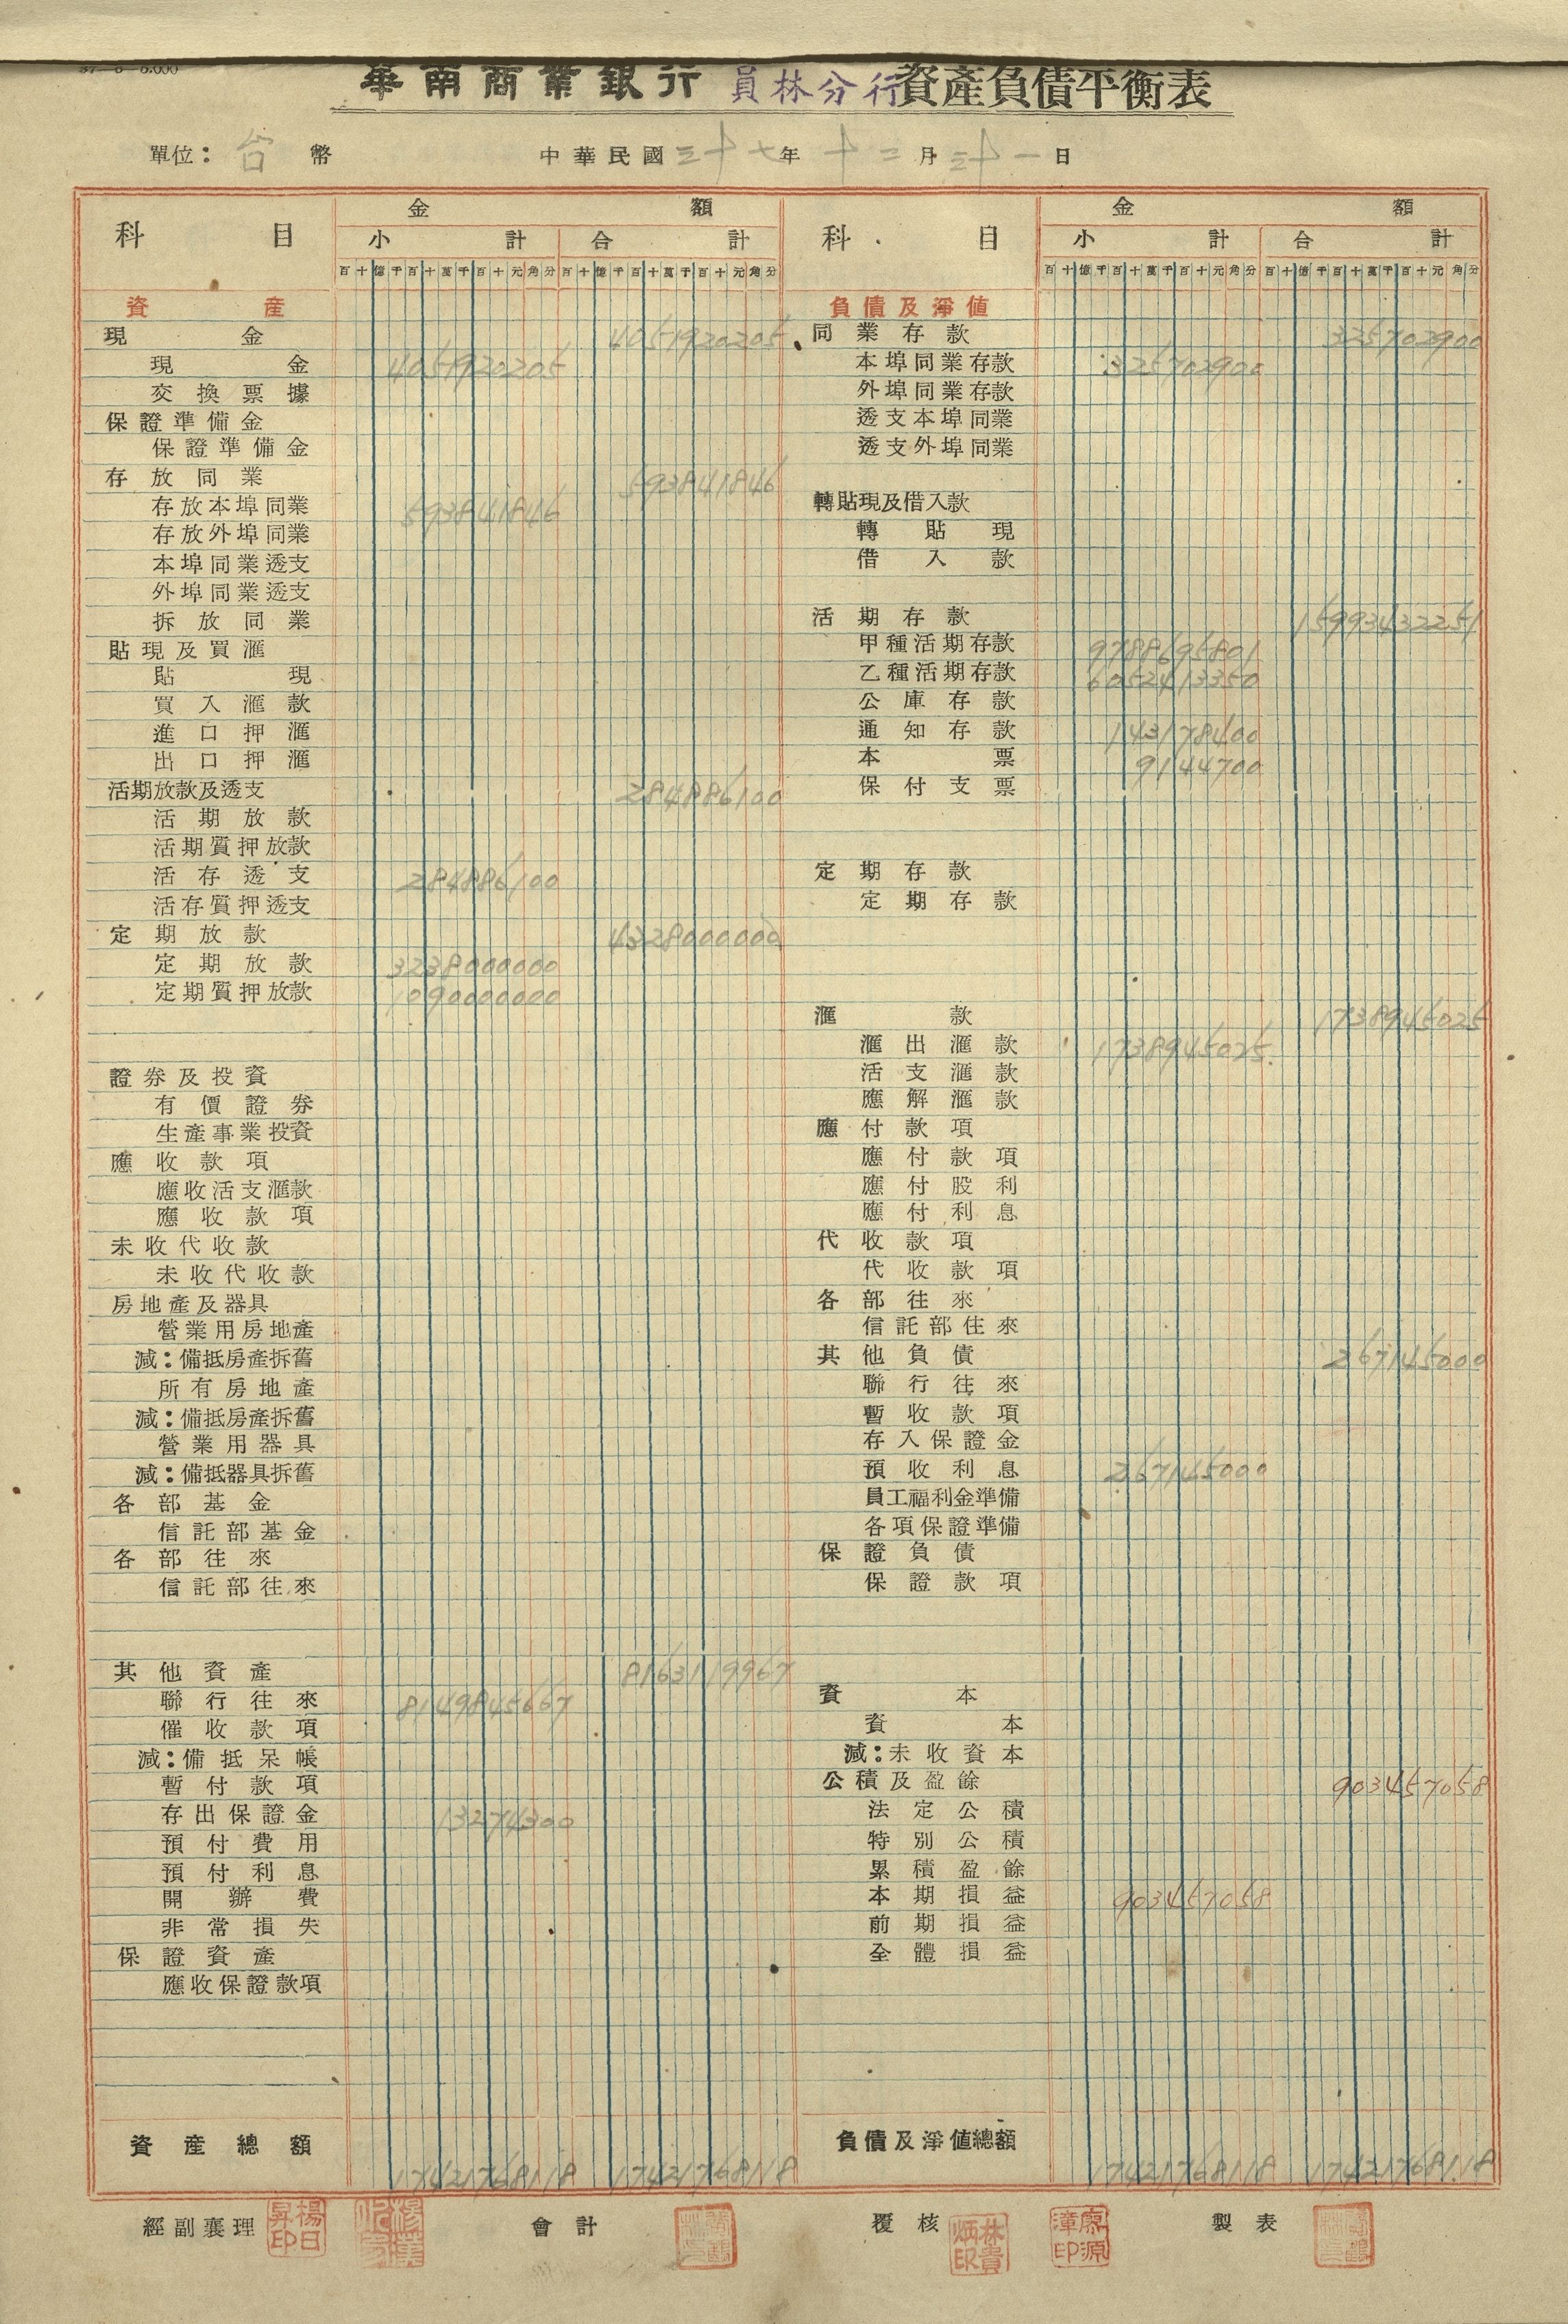 華南商業銀行員林分行資產負債平衡表
單位：台幣 中華民國三十七年十二月三十一日
科目 金額 科目 金額
小計 合計 小計 合計
百十億千百十萬千百十元角分 百十億千百十萬千百十元角分 百十億千百十萬千百十元角分 百十億千百十萬千百十元角分
資產
現金 4051920205
現金 4051920205
交換票據
保證準備金
保證準備金
存放同業 593841846
存放本埠同業 593841846
存放外埠同業
本埠同業透支
外埠同業透支
拆放同業
貼現及買滙
貼現
買入滙款
進口押滙
出口押滙
活期放款及透支 284886100
活期放款
活期質押放款
活存透支 284886100
活存質押透支
定期放款 4328000000
定期放款 3238000000
定期質押放款 1090000000
證券及投資
有價證券
生產事業投資
應收款項
應收活支滙款
應收款項
未收代收款
未收代收款
房地產及器具
營業用房地產
減：備抵房產拆舊
所有房地產
減：備抵房產拆舊
營業用器具
減：備抵器具拆舊
各部基金
信託部基金
各部往來
信託部往來
其他資產 8163119967
聯行往來 8149845667
催收款項
減：備抵呆帳
暫付款項
存出保證金 13274300
預付費用
預付利息
開辦費
非常損失
保證資產
應收保證款項
資產總額 17421768118 17421768118
負債及淨值
同業存款 325702900
本埠同業存款 325702900
外埠同業存款
透支本埠同業
透支外埠同業
轉貼現及借入款
轉貼現
借入款
活期存款 15993432251
甲種活期存款 9788695801
乙種活期存款 6052413350
公庫存款
通知存款 143178400
本票 9144700
保付支票
定期存款
定期存款
滙款 1738945025
滙出滙款 1738945025
活支滙款
應解滙款
應付款項
應付款項
應付股利
應付利息
代收款項
代收款項
各部往來
信託部往來
其他負債 267145000
聯行往來
暫收款項
存入保證金
預收利息 267145000
員工福利金準備
各項保證準備
保證負債
保證款項
資本
資本
減：未收資本
公積及盈餘 903457058
法定公積
特別公積
累積盈餘
本期損益 903457058
前期損益
全體損益
負債及淨值總額 17421768118 17421768118
經副襄理 楊日昇印 會計 覆核 林貴炳印 廖源漳印 製表